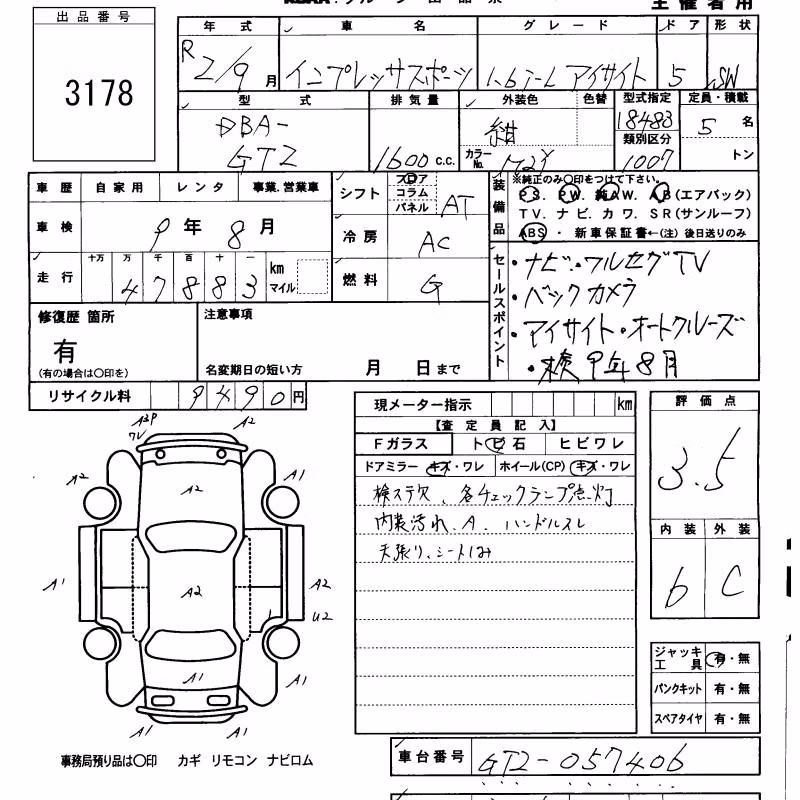 出品番号
3178
主催者用
年式 車名 グレード ドア 形状
R2/9月 インプレッサスポーツ 1.6i-L アイサイト 5 SW
型式 排気量 外装色 色替 型式指定 定員・積載
DBA-GT2 1600c.c. 紺 18483 5名
カラーNo. M2Y 類別区分 1007 トン
車歴 自家用 レンタ 事業.営業車
車検 9年8月
走行 十万 万 千 百 十 一
47883 km マイル
シフト フロア コラム パネル AT
冷房 AC
燃料 G
装備品
※純正のみ〇印をつけて下さい。
PS. PW. 純AW. AB(エアバック)
TV. ナビ. カワ. SR(サンルーフ)
ABS ・ 新車保証書←(注) 後日送りのみ
セールスポイント
・ナビ・ワルセグTV
・バックカメラ
・アイサイト・オートクルーズ
・検9年8月
修復歴 箇所
有
(有の場合は〇印を)
注意事項
名変期日の短い方 月 日まで
リサイクル料 9490円
現メーター指示 km
【査定員記入】
Fガラス トビ石 ヒビワレ
ドアミラー キズ・ワレ ホイール(CP) キズ・ワレ
検ステ欠、各チェックランプ点灯
内装汚れ、A、ハンドルスレ
天張り、シートしみ
評価点
3.5
内装 外装
b C
ジャッキ工具 有・無
パンクキット 有・無
スペアタイヤ 有・無
A3P
ワレ
A2
A2 A1
A2
A1 A2 A2
U2
A1
A1 A1
A1 A1
事務局預り品は〇印 カギ リモコン ナビロム
車台番号 GT2-057406